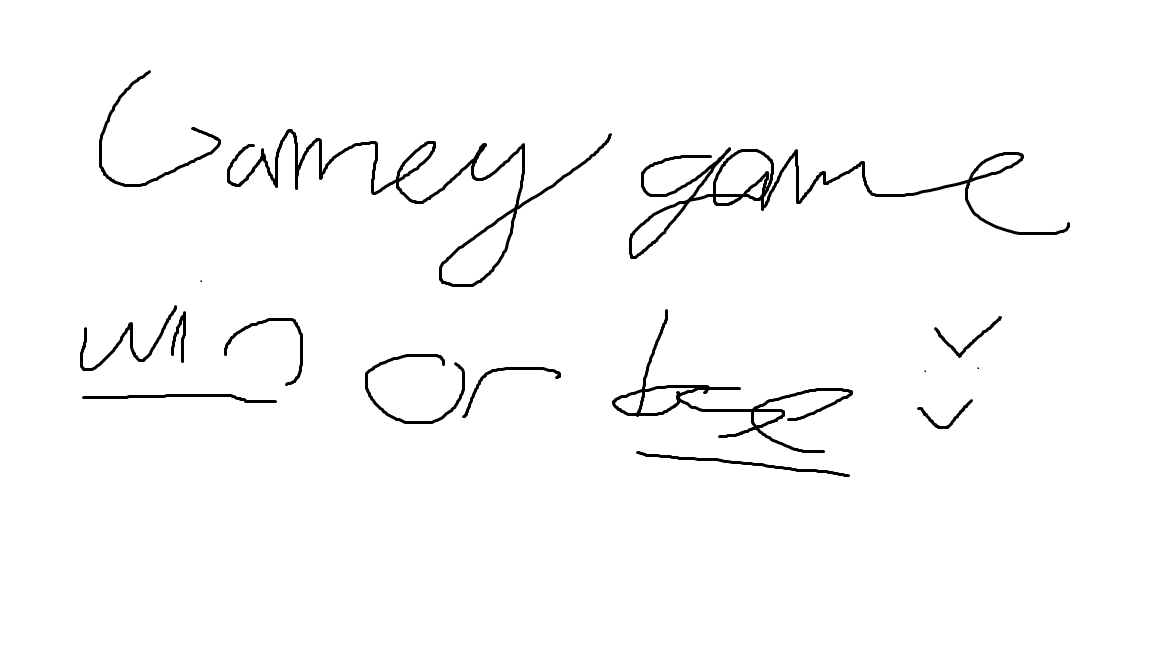 Gamey game
win or lose